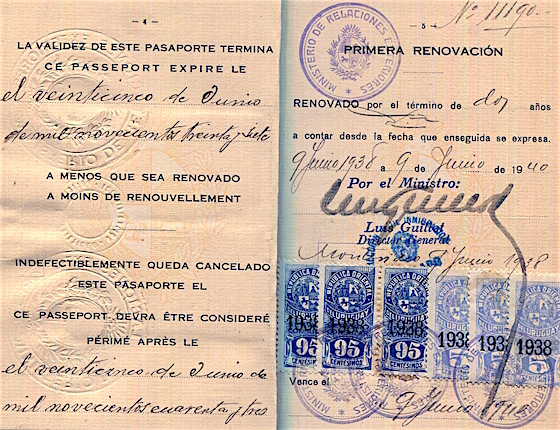 - 4 -
LA VALIDEZ DE ESTE PASAPORTE TERMINA
CE PASSEPORT EXPIRE LE
el veinticinco de Junio
de mil novecientos treinta y siete
A MENOS QUE SEA RENOVADO
A MOINS DE RENOUVELLEMENT
INDEFECTIBLEMENTE QUEDA CANCELADO
ESTE PASAPORTE EL
CE PASSEPORT DEVRA ÊTRE CONSIDERÉ
PÉRIMÉ APRÈS LE
el veinticinco de Junio de
mil novecientos cuarenta y tres
- 5 -
Nº 11190.-
MINISTERIO DE RELACIONES EXTERIORES
PRIMERA RENOVACIÓN
RENOVADO por el término de dos años
a contar desde la fecha que enseguida se expresa.
9 Junio 1938 a 9 de Junio de 1940
Por el Ministro:
Luis Guillot
Director General
Junio 1938
REPUBLICA ORIENTAL
URUGUAY
1938 1938 1938 1938 1938 1938
95 95 95
CENTESIMOS CENTESIMOS CENTESIMOS
Vence el 9 Junio